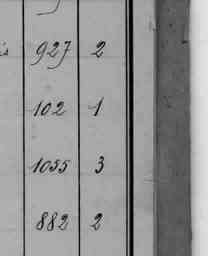 is 927 2
102 1
1055 3
882 2